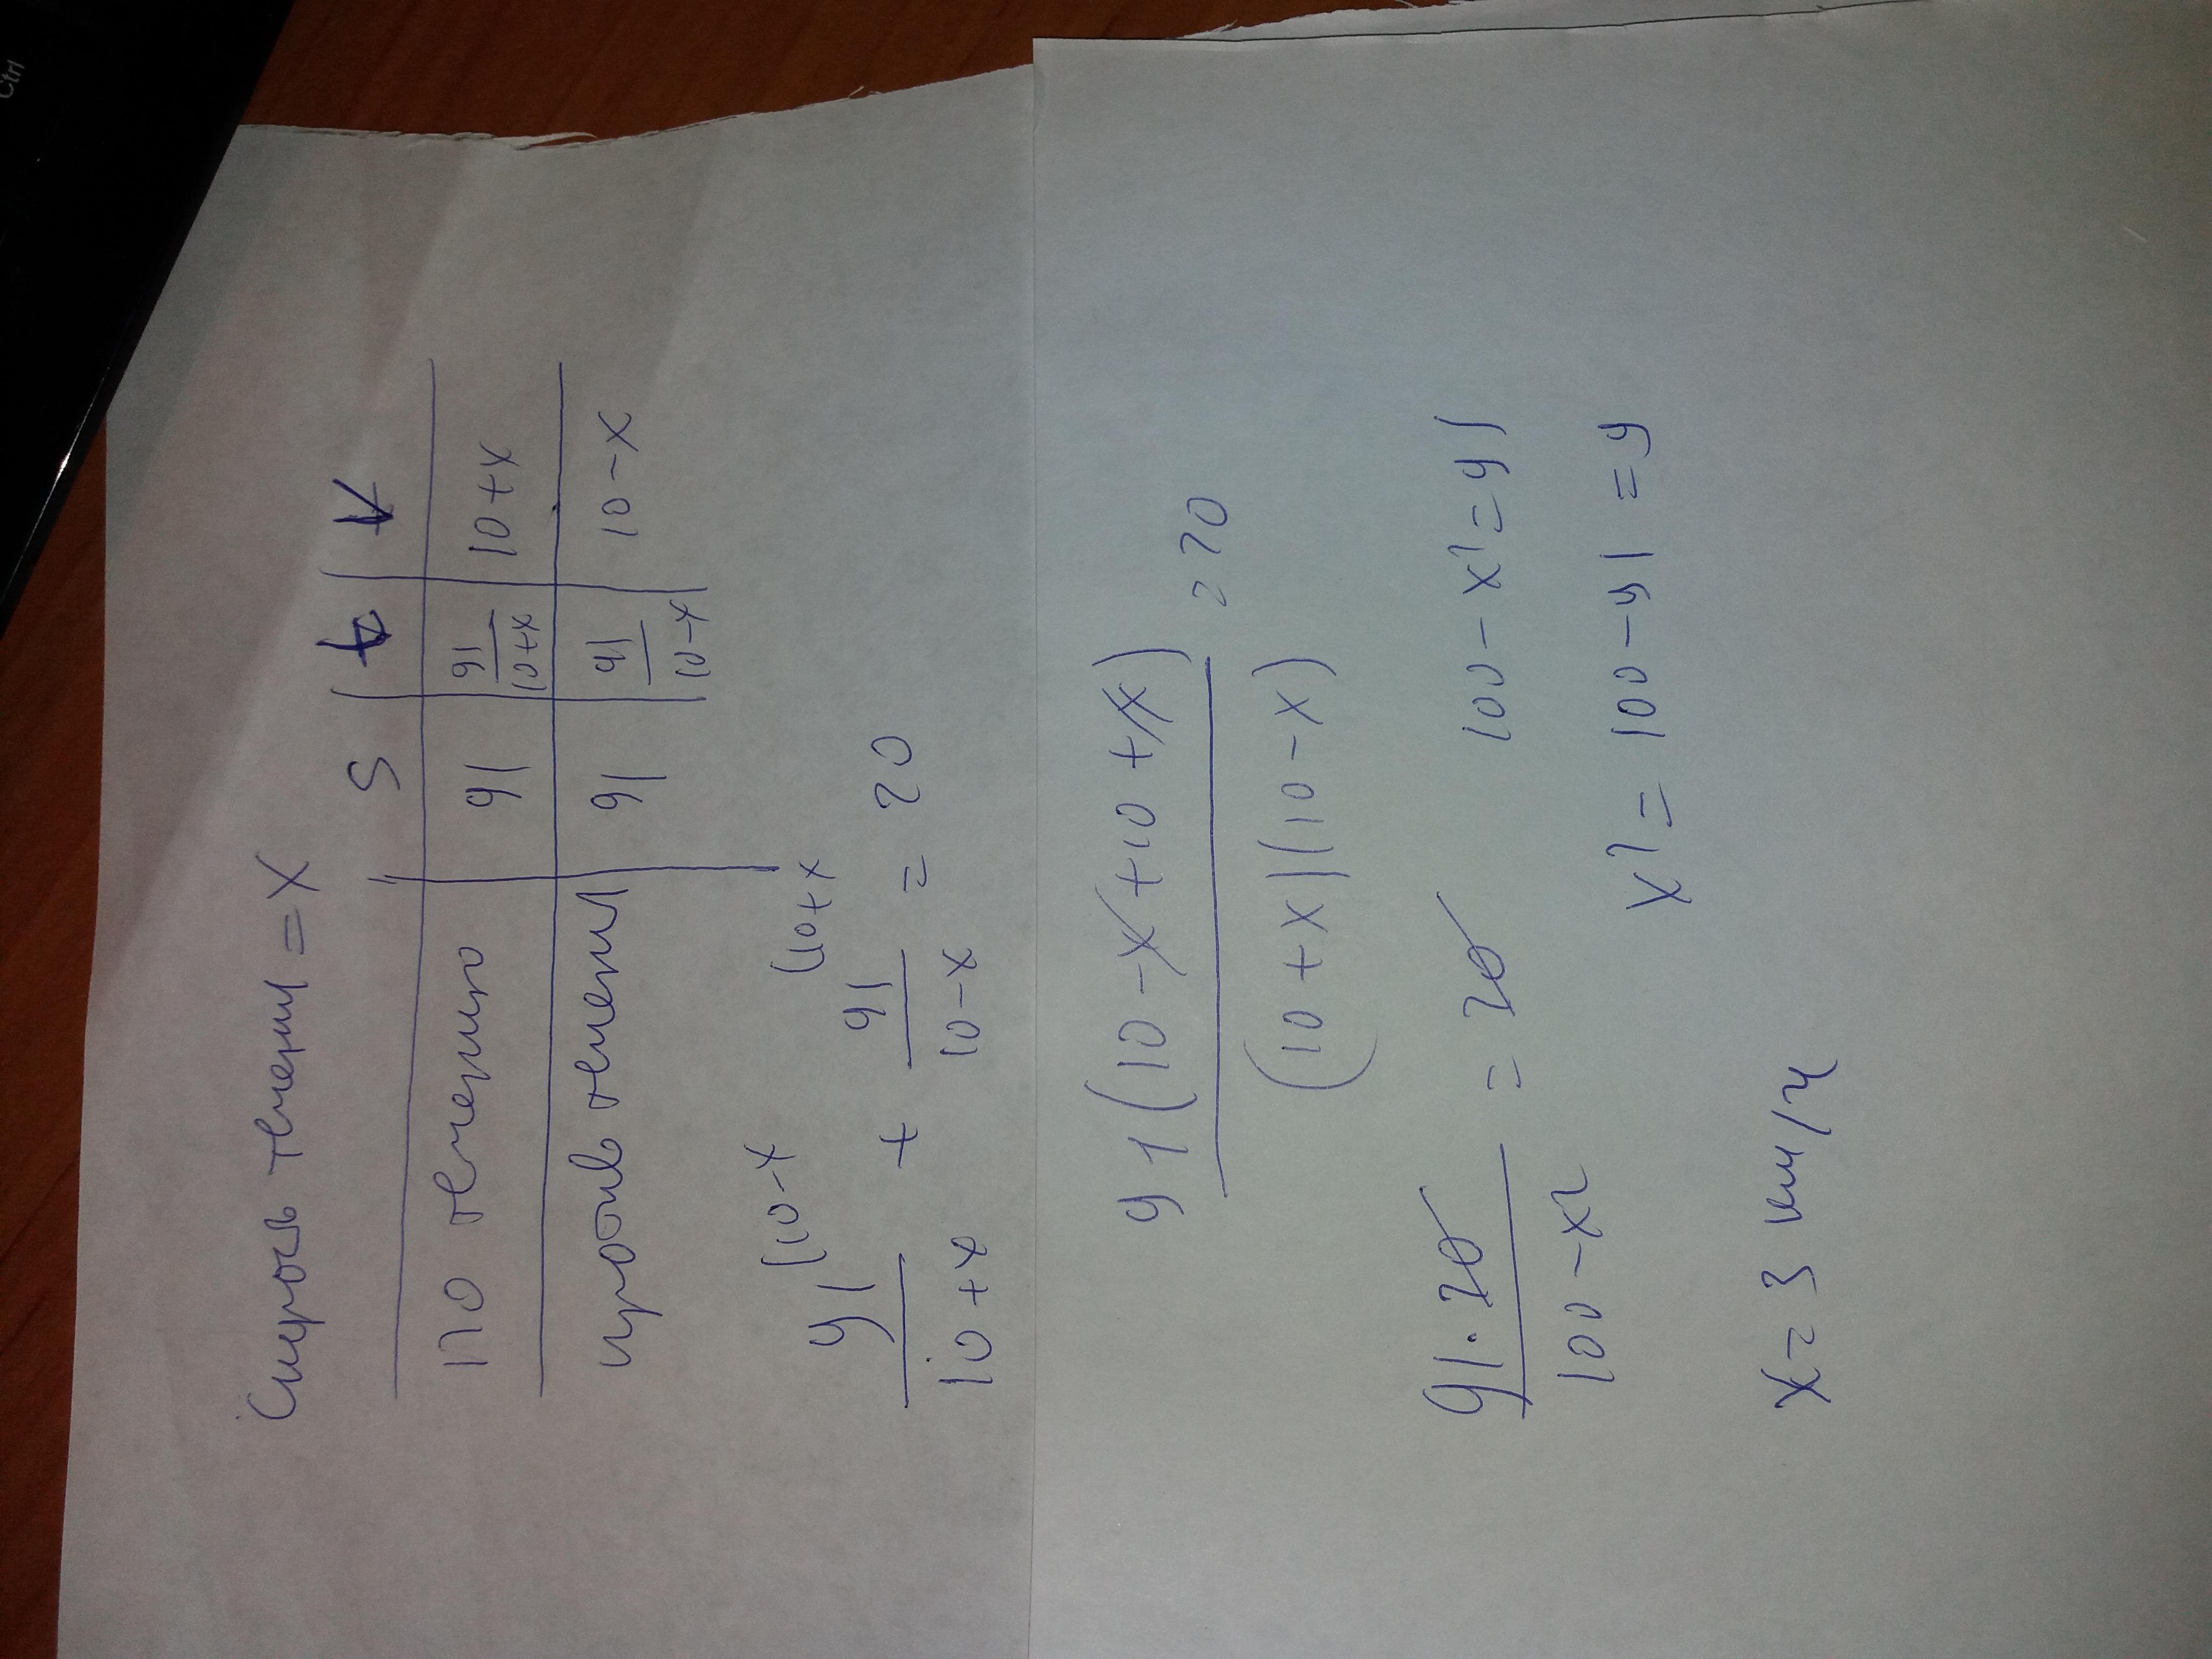 Ctrl
Скорость течения = x
S | t | V
по течению | 91 | 91/(10+x) | 10+x
против течения | 91 | 91/(10-x) | 10-x
(10-x (10+x
91/(10+x) + 91/(10-x) = 20
91(10-x+10+x)/((10+x)(10-x)) = 20
91·20/(100-x²) = 20 100-x²=91
x² = 100-91=9
x=3 км/ч